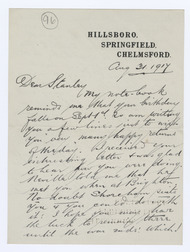 90
HILLSBORO.
SPRINGFIELD,
CHELMSFORD.
Aug 31 1917
Dear Stanley
My note book
reminds me that your birthday
falls on Sept 1st so am writing
you a few lines just to wish
you many happy returns
of the day. I received your
interesting letter & was glad
to hear you were
told me that he
met you when at Brighton
No doubt
you if you could do with
it; I hope you may have
the luck to remain there
until the war ends which I